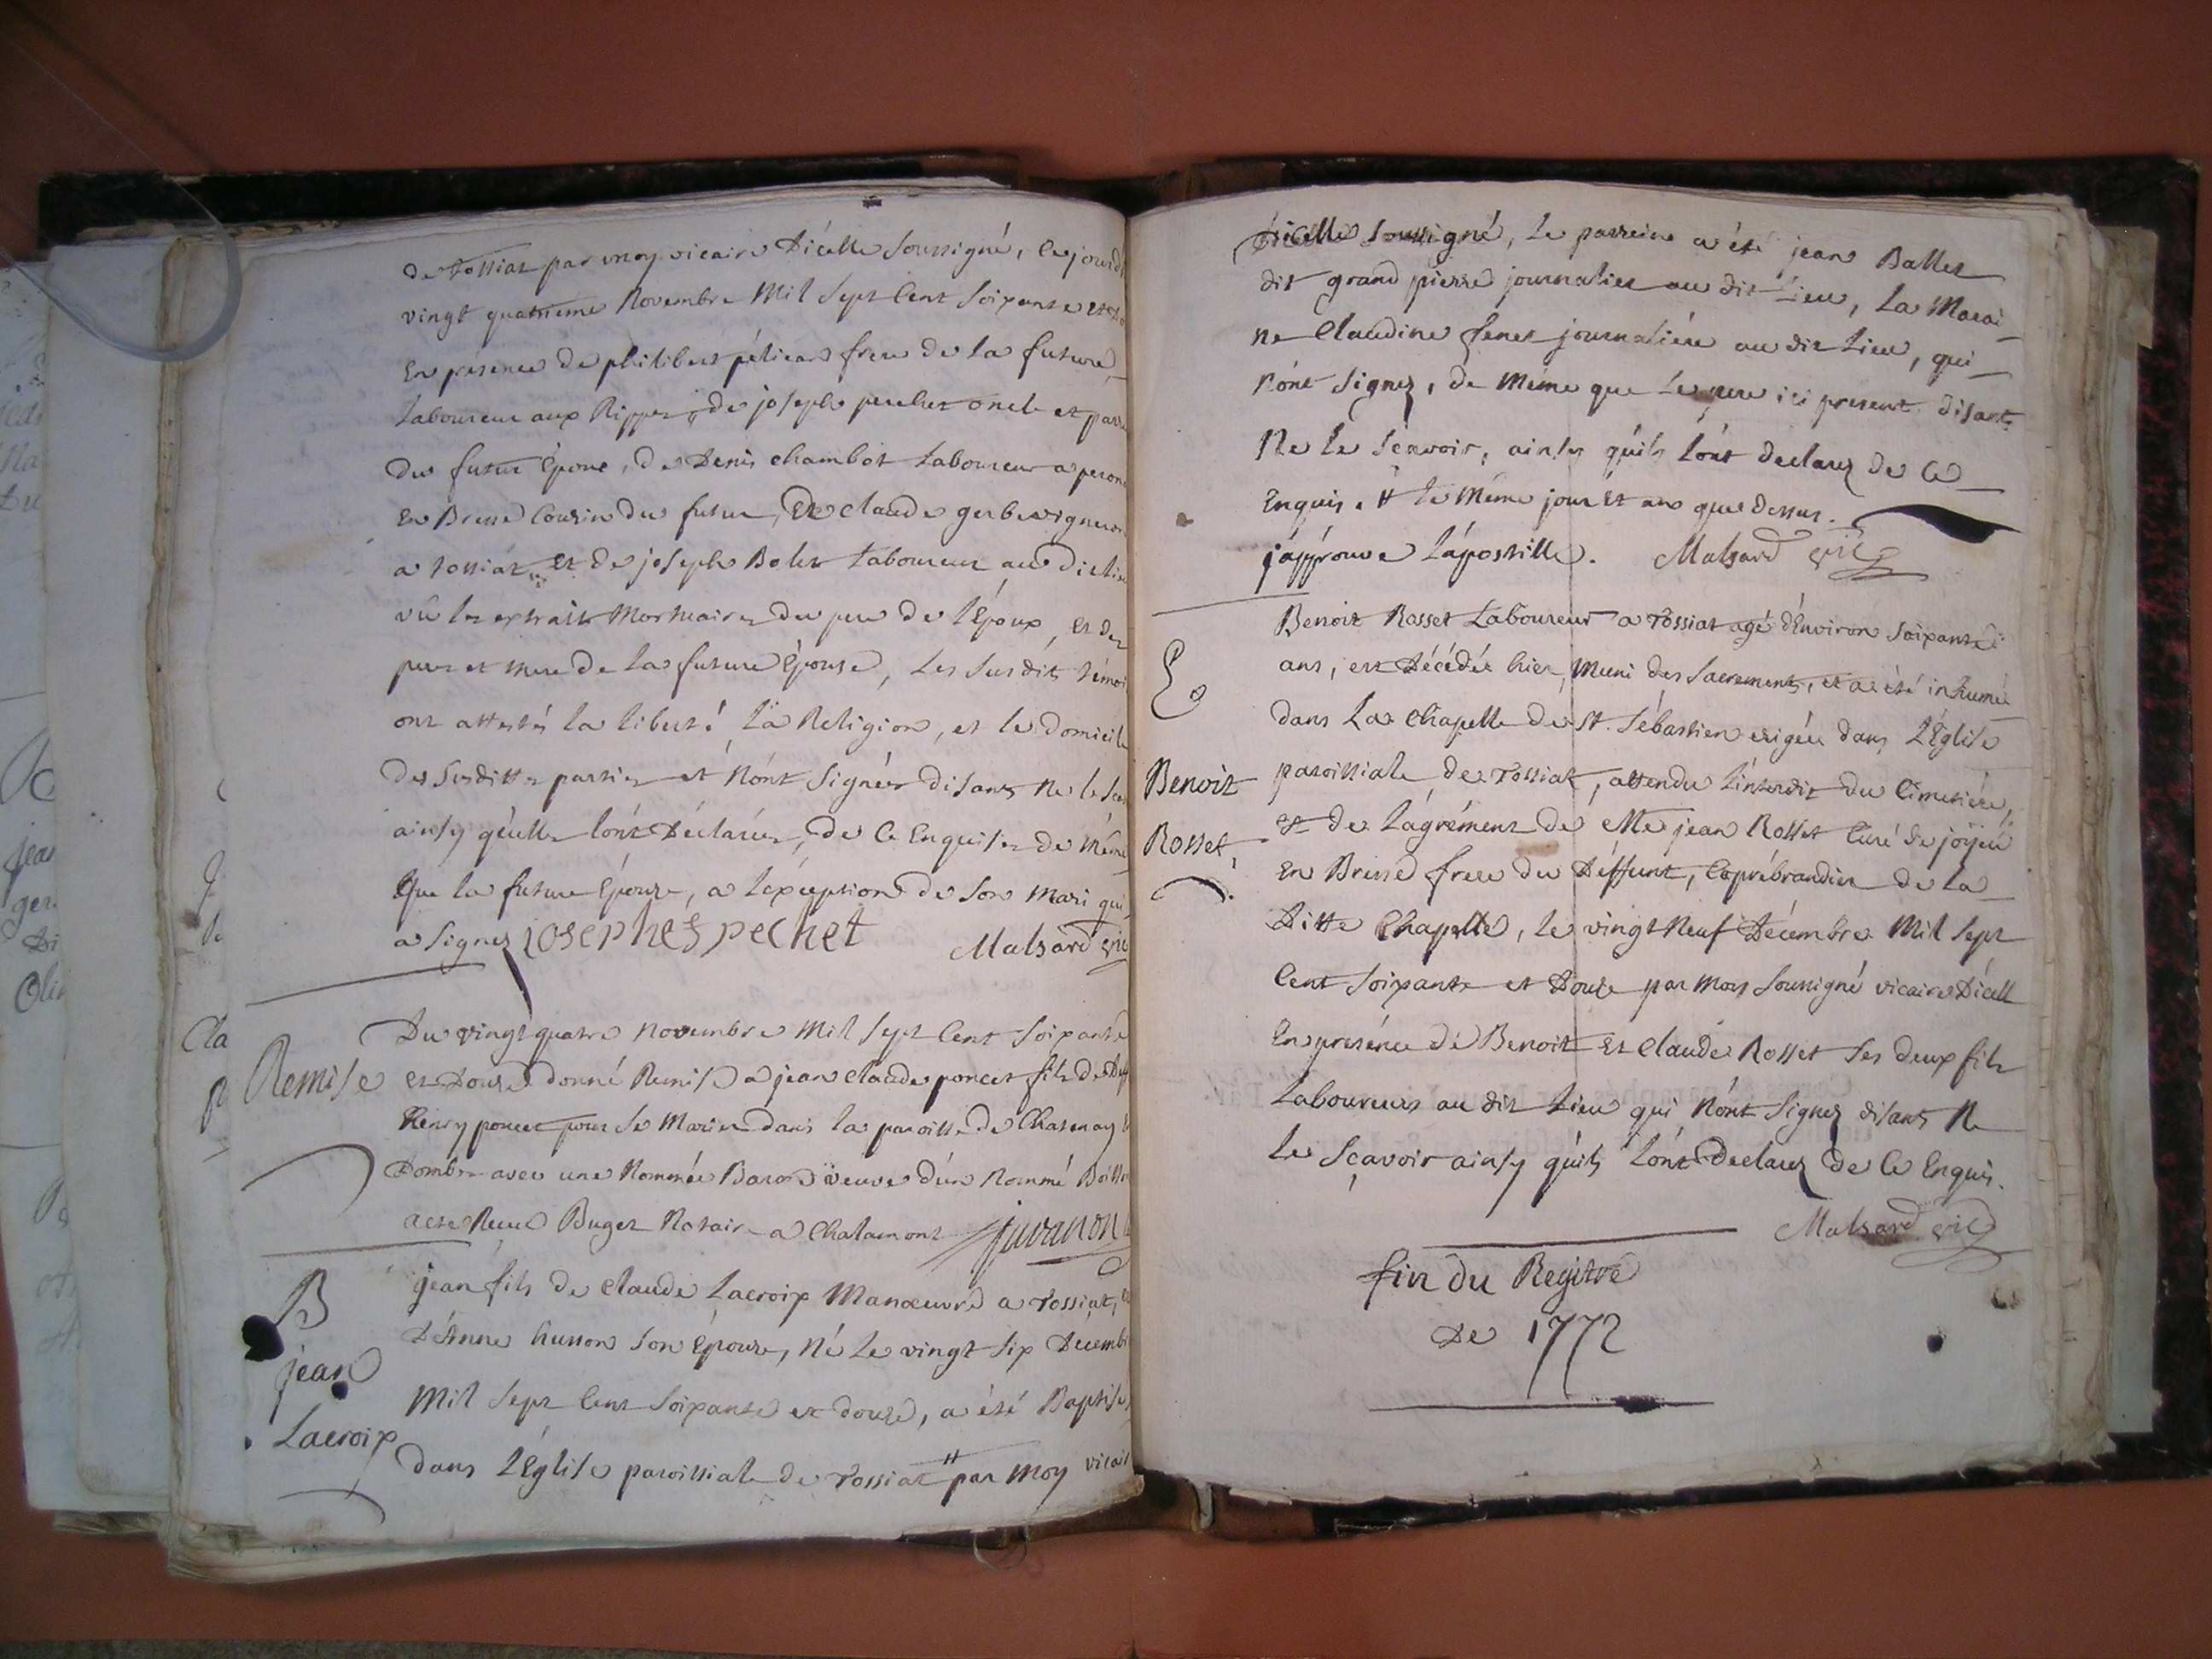 de Tossiat par moy vicaire D'icelle Soussigné, Ce jourd'
vingt quatrieme Novembre Mil Sept Cent Soixante et
En présence de philibert pélicand frere de la future
Laboureur aux Rippes, de joseph pechet oncle et
Du futur Epoux, de Denis chambot Laboureur a peron
En Bresse Cousin du futur, De claude gerbe vigneron
a tossiat, Et de joseph Bolet Laboureur au Dit lieu
vû les extraits Mortuaires du pere de l'Epoux, et des
pere et mere de la future Epouse, Les Susdits témoi
ont attestés la liberté, la Religion, et le domicile
des Susdittes parties et N'ont Signées disants Ne le
ainsy qéulles l'ont Déclarées, de Ce Enquises de Même
Que la future Epouse, a l'exception de Son Mari qui
a Signez josephes pechet Malsard vic
Du vingt quatre Novembre Mil Sept Cent Soixante
Remise et Douze donné Remise a jean claude poncet fils de
Henry poncet pour Se Marier dans la paroisse de Chatenay
Dombe avec une Nommée Baron veuve d'un Nommé
acte Recu Buget Notaire a Chalamont juvanon
B jean fils de claude Lacroix Manoeuvre a Tossiat,
D'Anne husson Son Epouse, Né Le vingt Six Decemb
jean Mil Sept Cent Soixante et douze, a été Baptisé
Lacroix dans L'Eglise paroissiale de Tossiat # par Moy vicair
D'icelle Soussigné, Le parrein a été jean Ballet
dit grand pierre journalier au dit Lieu, La Marai
ne Claudine fenet journaliére au dit Lieu, qui
N'ont Signez, de Même que Le pere ici present disant
Ne le Scavoir, ainsy qu'ils l'ont declarez de Ce
Enquis. # le Même jour Et an que dessus.
j'approuve L'apostille. Malsard vic
Benoit Rosset Laboureur a Tossiat agé d'Environ Soixante
E ans, est Décédée hier, Muni des Sacrements, et a été inhumée
dans La Chapelle de St. Sébastien erigée dans L'Eglise
Benoit paroissiale de Tossiat, attendu L'interdit du Cimetiére,
Rosset, et de L'agrément de Me jean Rosset Curé de joijeu
En Bresse frere du Déffunt, Coprébrandier de la
Ditte Chapelle, Le vingt Neuf Décembre Mil Sept
Cent Soixante et Douze par Moy Soussigné vicaire D'icelle
En presénce dé Benoit Et claude Rosset Ses deux fils
Laboureurs au dit Lieu qui N'ont Signez disants Ne
le Sçavoir ainsy qu'ils l'ont Declarez de Ce Enquis.
Malsard vic
fin du Regitre
De 1772